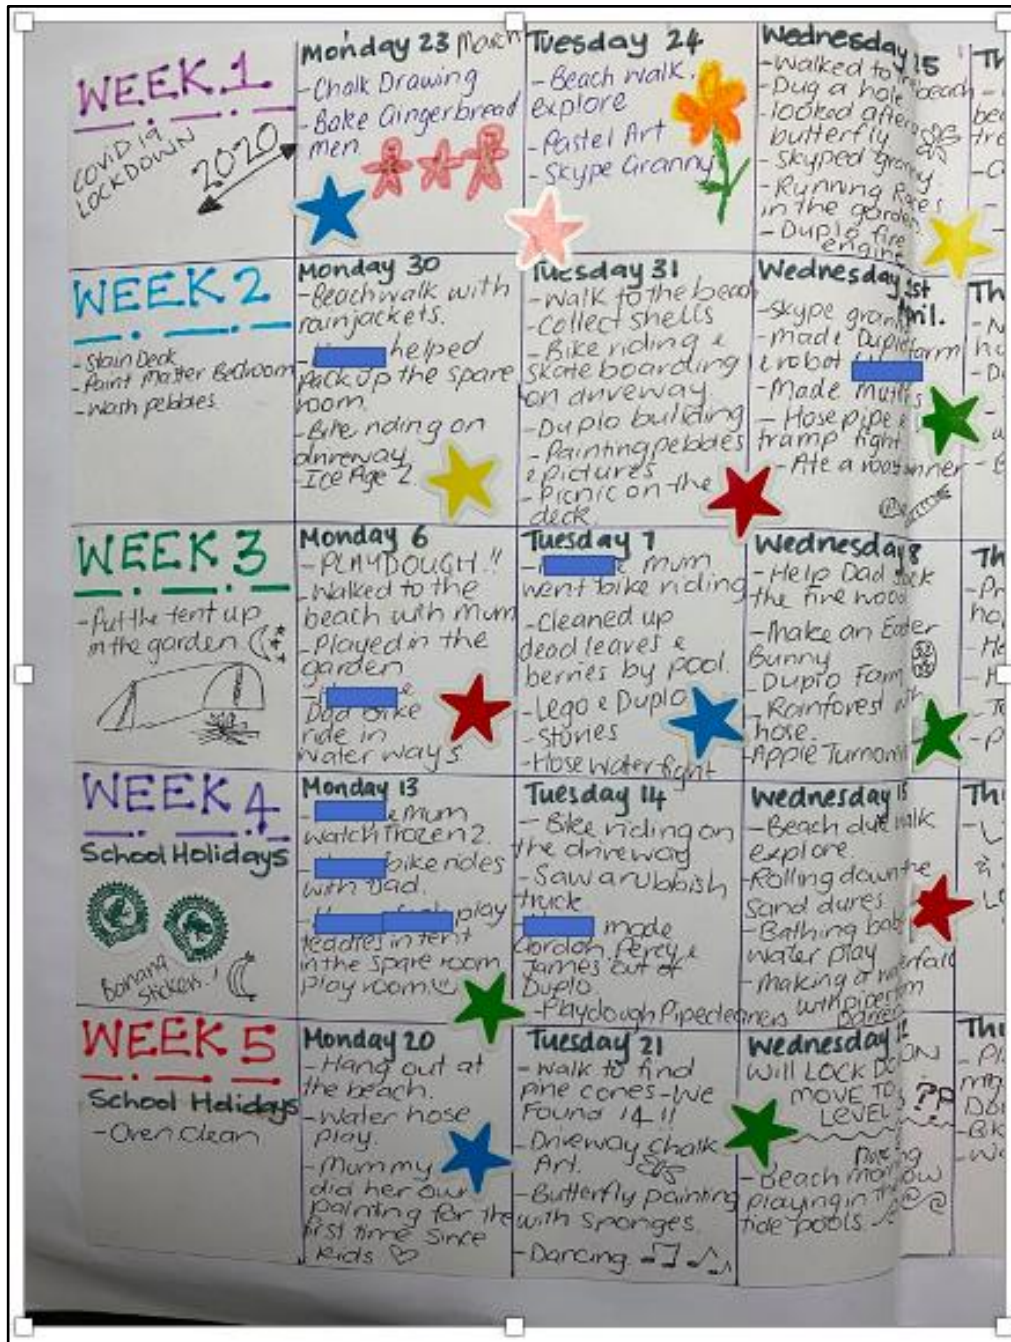 WEEK 1
COVID 19
LOCKDOWN
2020
Monday 23 March
- Chalk Drawing
- Bake Gingerbread
men
Tuesday 24
- Beach walk.
explore
- Pastel Art
- Skype Granny
Wednesday 25
- Walked to beach
- Dug a hole
- looked after a
butterfly
- Skyped granny.
- Running Races
in the garden.
- Duplo fire
engine
Th
WEEK 2
- Stain Deck
- Paint Master Bedroom
- Wash pebbles.
Monday 30
- Beachwalk with
rainjackets.
helped
pack up the spare
room.
- Bike riding on
driveway
- Ice Age 2.
Tuesday 31
- Walk to the beach
- Collect shells
- Bike riding &
skateboarding
on driveway
- Duplo building
- Painting pebbles
& pictures
- Picnic on the
deck.
Wednesday 1st
April.
- Skype granny
- made Duplo farm
& robot
- Made
- Hose pipe &
tramp fight
- Ate a roast dinner
Th
WEEK 3
- Put the tent up
in the garden
Monday 6
- PLAYDOUGH!!
- Walked to the
beach with mum
- Played in the
garden
&
Dad bike
ride in
water ways
Tuesday 7
mum
went bike riding
- Cleaned up
dead leaves &
berries by pool.
- Lego & Duplo
- Stories
- Hose water fight
Wednesday 8
- Help Dad
the fire wood
- Make an Easter
Bunny
- Duplo Farm
- Rainforest with
hose.
- Apple Turnover
Th
WEEK 4
School Holidays
Banana
Sticker!
Monday 13
& mum
watch Frozen 2.
bike rides
with Dad.
play
teddies in tent
in the spare room
play room
Tuesday 14
- Bike riding on
the driveway
- Saw a rubbish
truck
made
Gordon, Percy &
James out of
Duplo.
- Playdough Pipecleaners
Wednesday 15
- Beach walk
explore.
- Rolling down the
sand dunes
- Bathing
water play
- making a waterfall
with
Th
WEEK 5
School Holidays
- Oven Clean
Monday 20
- Hang out at
the beach.
- Water hose
play.
- Mummy
did her own
painting for the
first time since
kids
Tuesday 21
- Walk to find
pine cones - We
Found 14!!
- Driveway Chalk
Art.
- Butterfly painting
with sponges.
- Dancing
Wednesday
WILL LOCK DOWN
MOVE TO
LEVEL ??
- Beach
playing in the
tide pools
Th